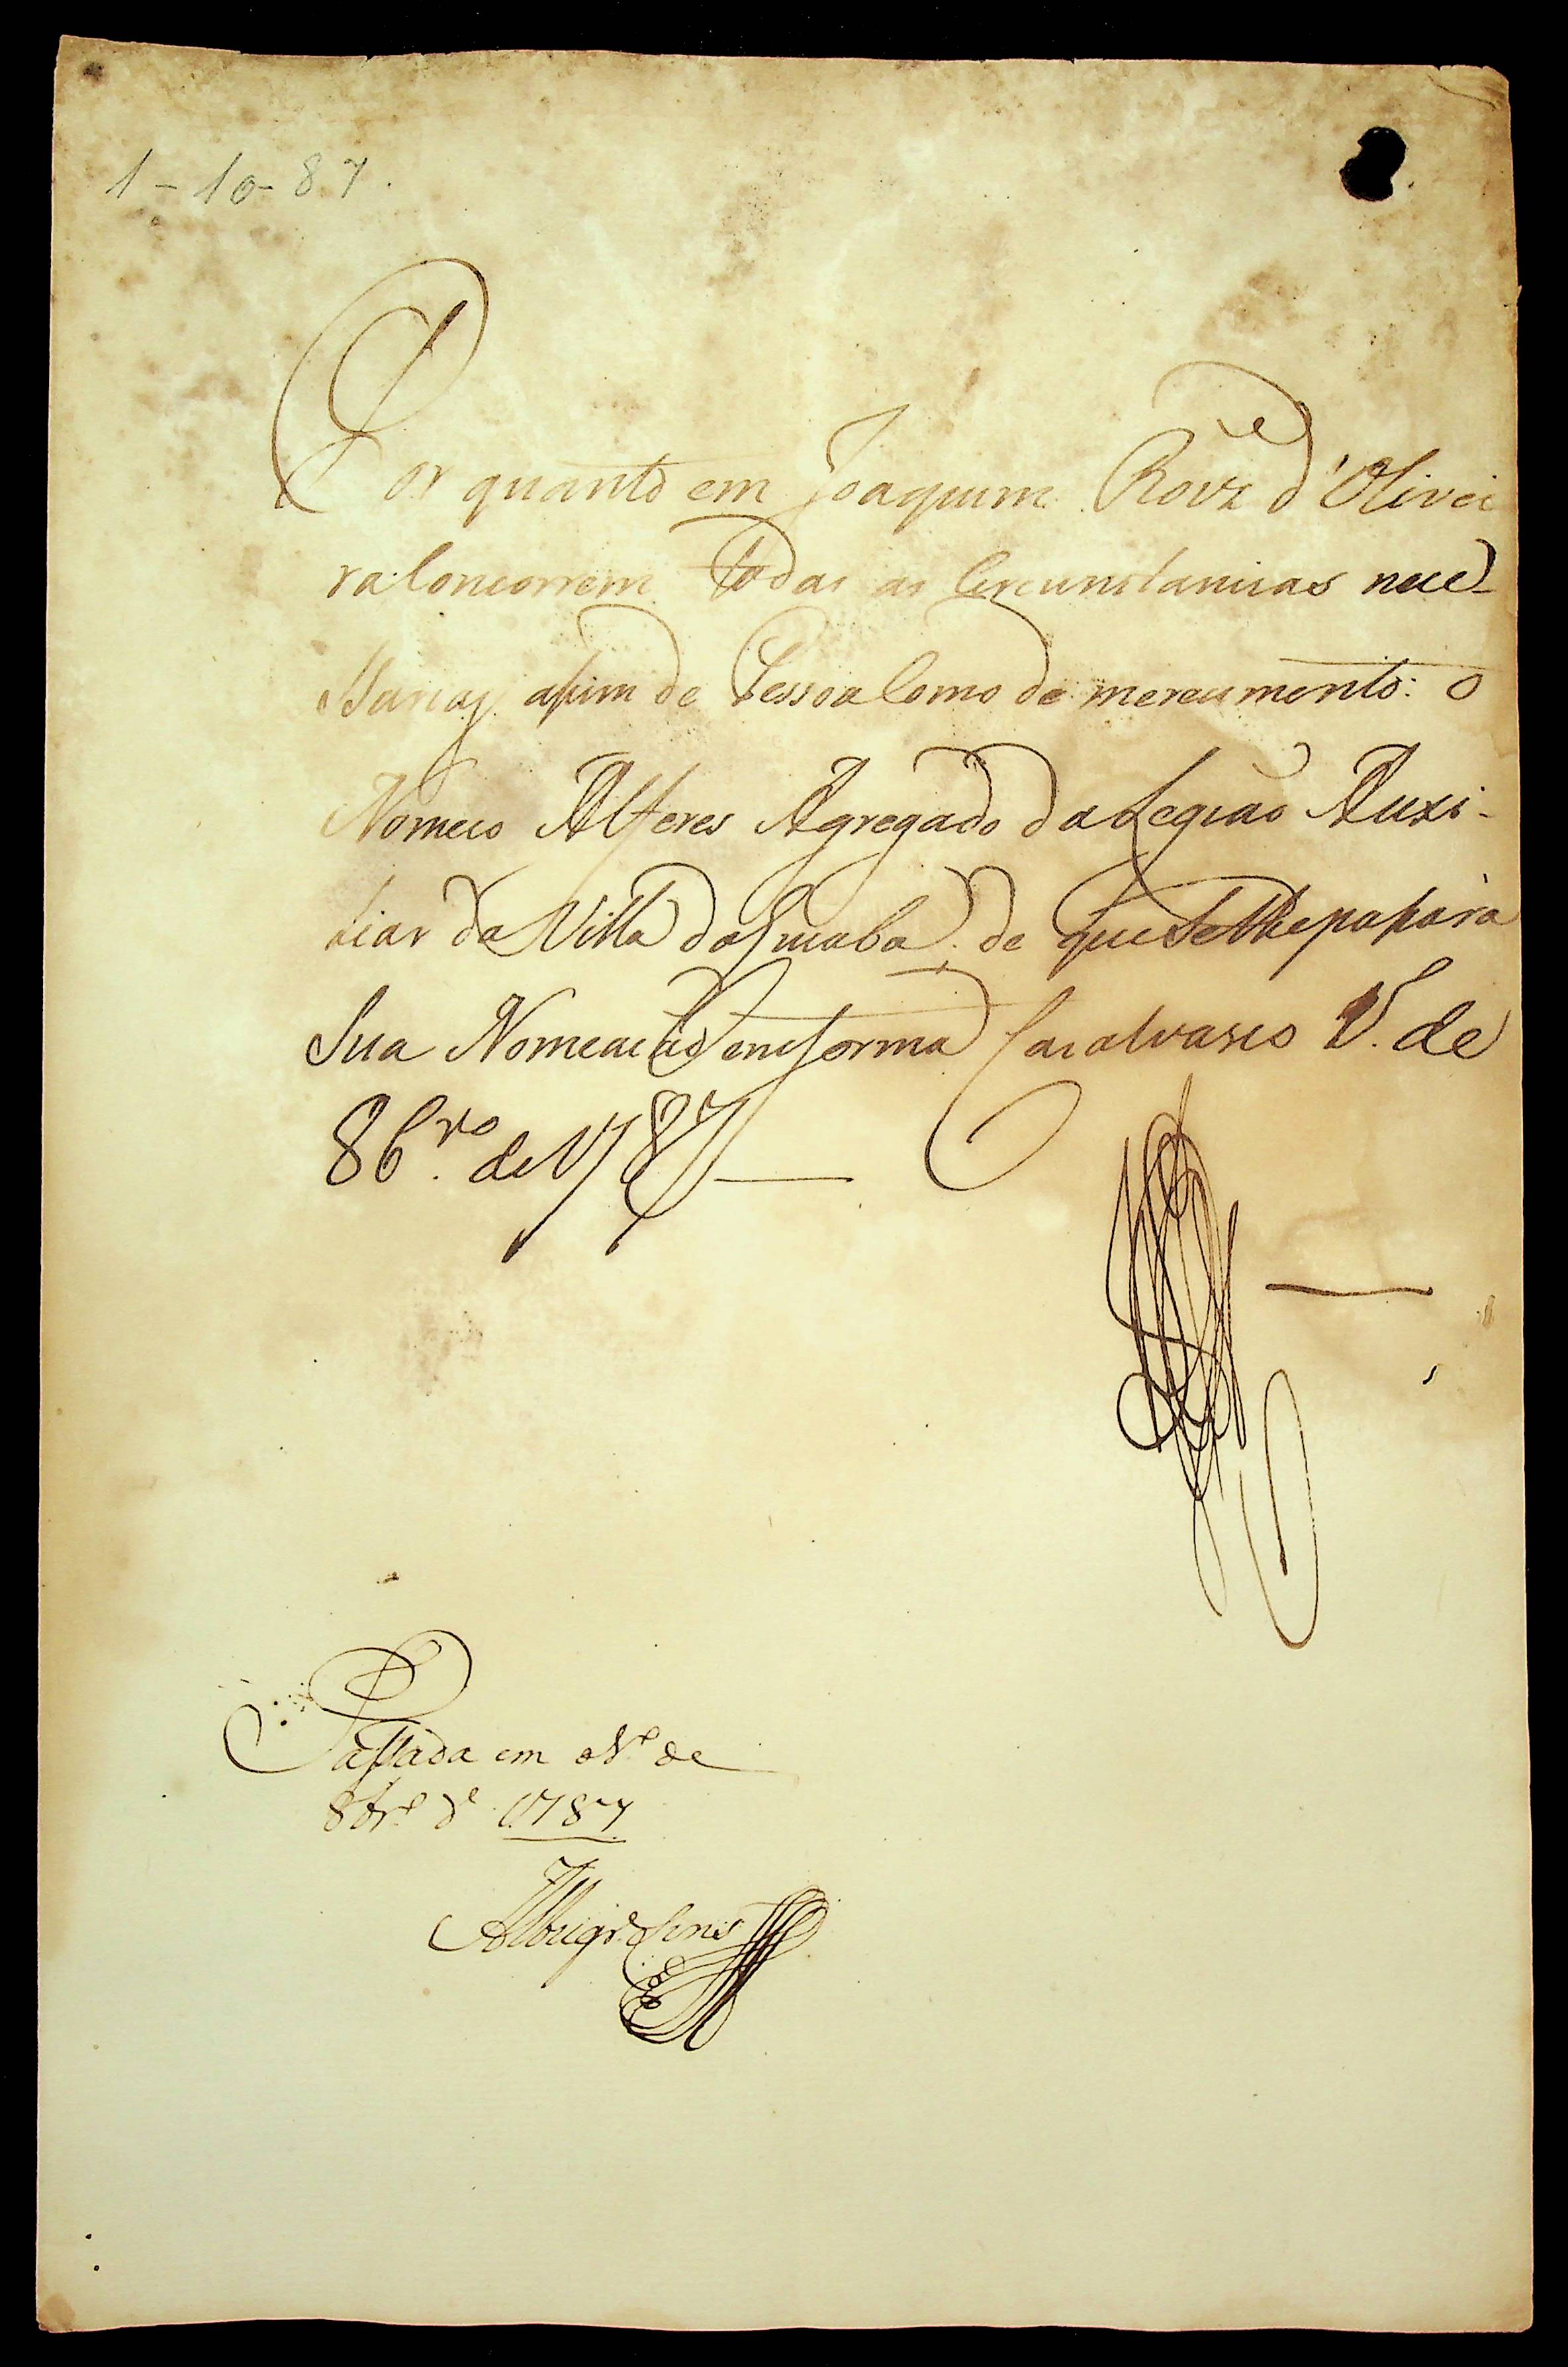 1-10-87.
Por quanto em Joaquim Roĩz d'Olivei
ra Concorrem todas as Circunstancias nece-
ssarias assim de Pessoa Como de merecimento: O
Nomeio Alferes Agregado da Legiaõ Auxi-
liar da Villa do Cuiabá de que se lhe passará
Sua Nomeação em forma Casalvasco 1.º de
8br.º de 1787
Passada em o 1.º de
8br.º d.e 1787